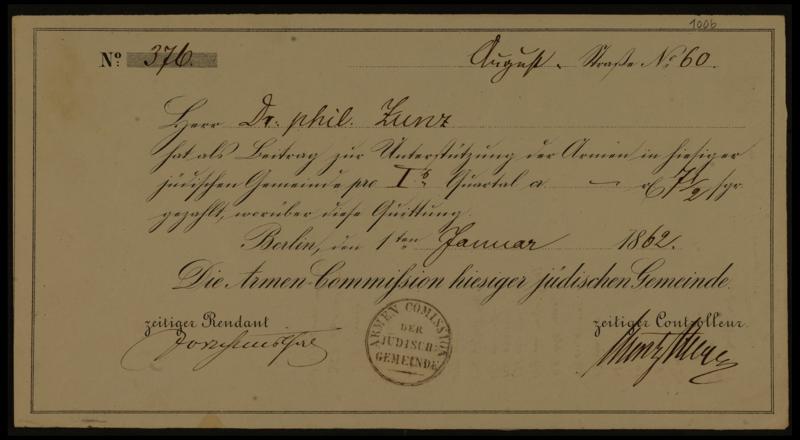 1006
No: 376. August-Straße No 60.
Herr Dr. phil. Zunz
hat als Beitrag zur Unterstützung der Armen in hiesiger
jüdischen Gemeinde pro Its Quartal a. — rf 7 1/2 sgr.
gezahlt, worüber diese Quittung.
Berlin, den 1ten Januar 1862.
Die Armen-Commission hiesiger jüdischen Gemeinde.
zeitiger Rendant zeitiger Controlleur.
ARMEN COMISSION
DER
JÜDISCH:
GEMEINDE